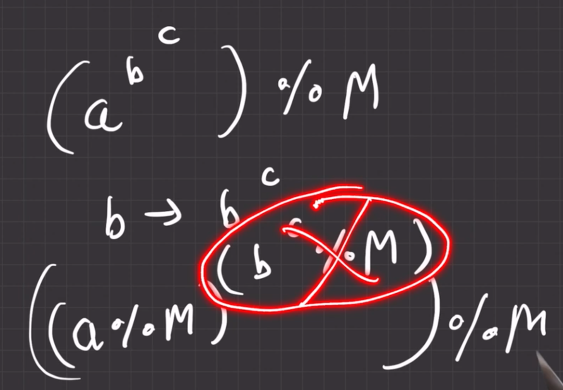 (a^b^c) % M
b → b^c
((a%M)^(b^c % M)) % M